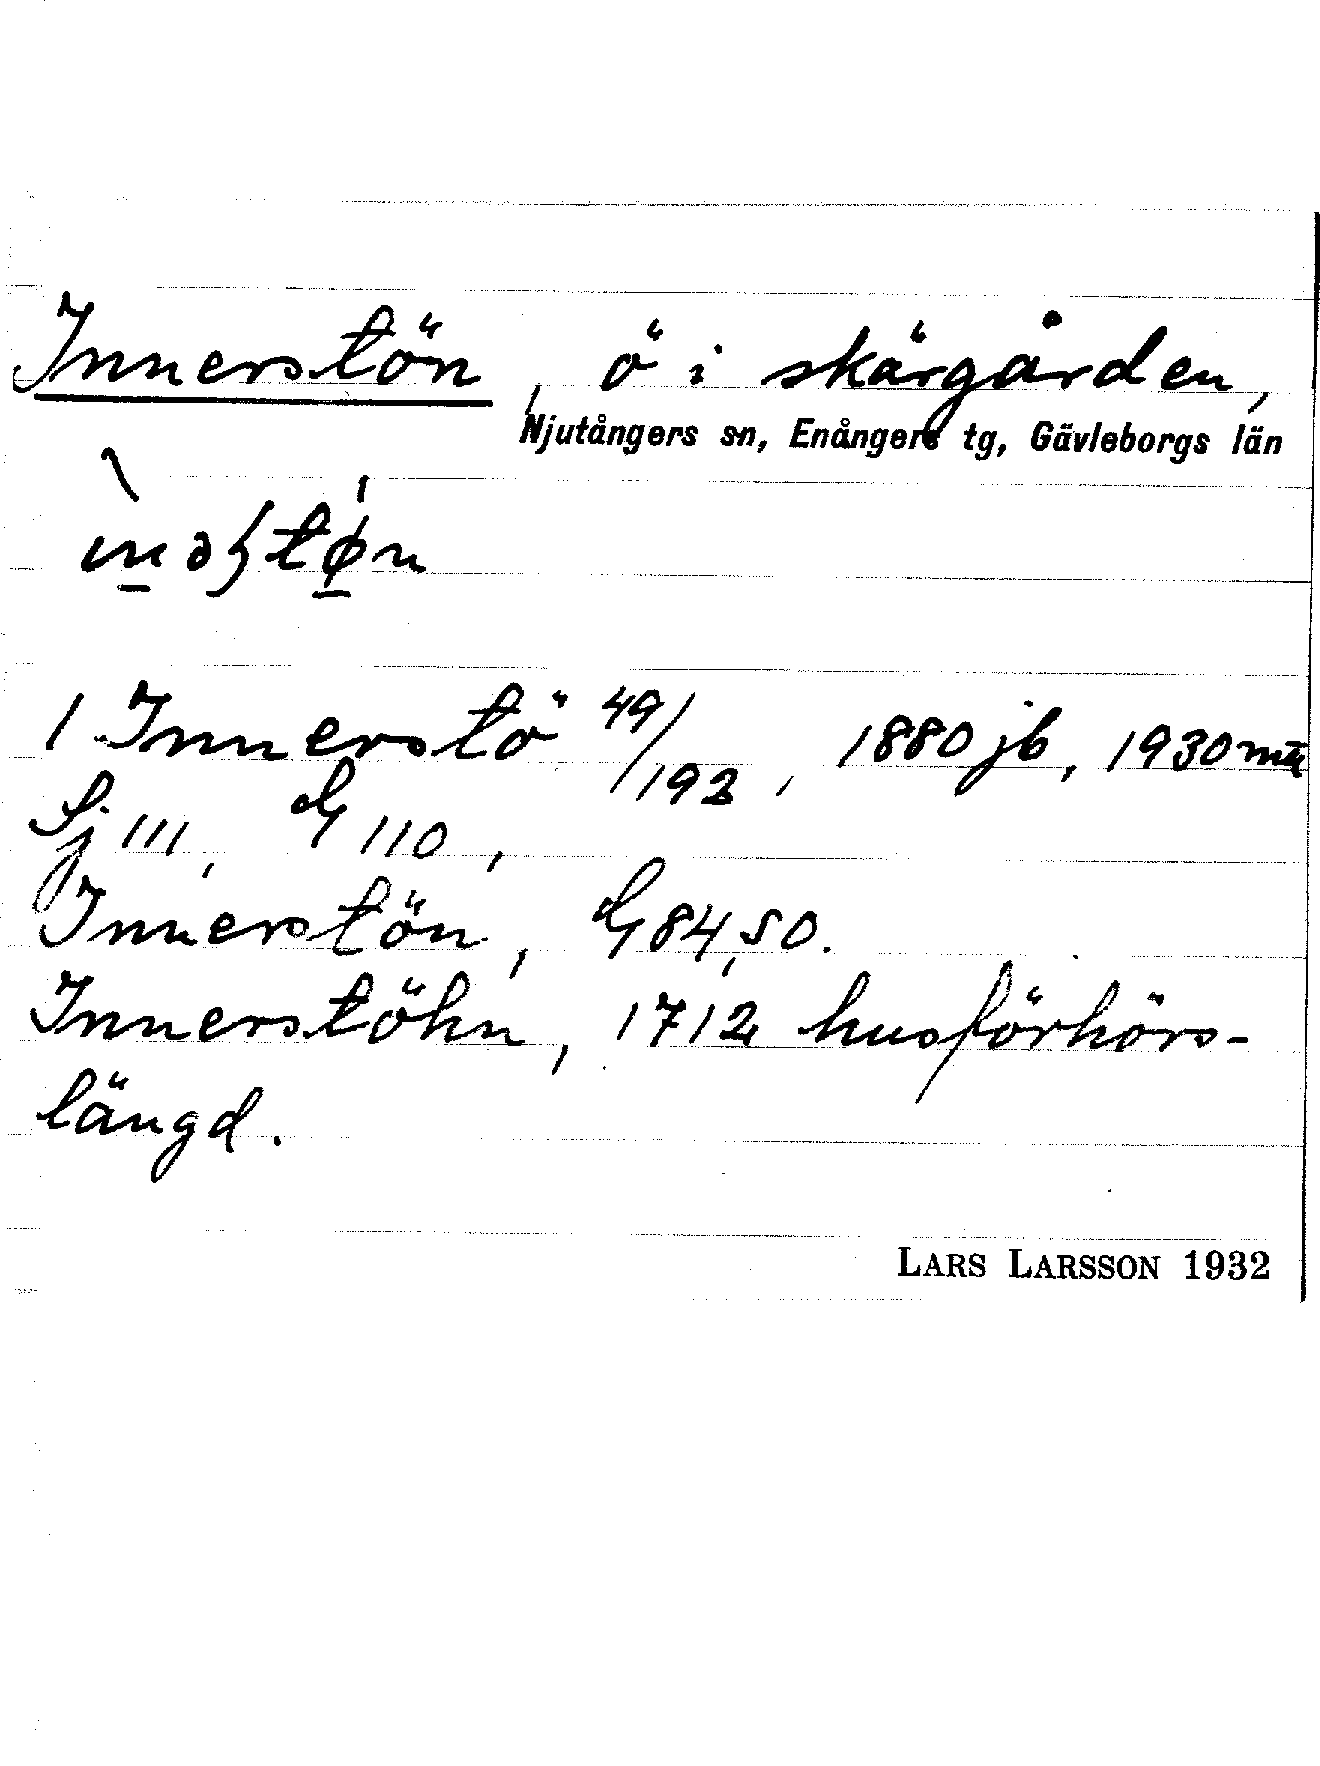 Innerstön, ö i skärgården,
Njutångers sn, Enångers tg, Gävleborgs län
1 Innerstö 49/192, 1880 jb, 1930
Sj 111, G 110,
Innerstön, G 84,50.
Innerstöhn, 1712 husförhörs-
längd.
LARS LARSSON 1932